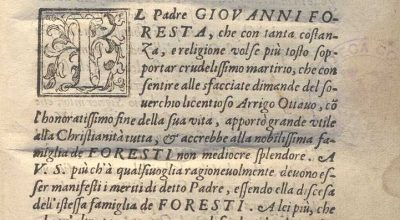 IL Padre GIOVANNI FO-
RESTA, che con tanta costan-
za, e religione volse più tosto sop-
portar crudelissimo martirio, che con
sentire alle sfacciate dimande del so-
uerchio licentioso Arrigo Ottauo, cõ
l'honoratissimo fine della sua vita, apportò grande vtile
alla Christianità tutta, & accrebbe alla nobilissima fa-
miglia de FORESTI non mediocre splendore. A
V. S. più ch'à qualsiuoglia ragioneuolmente deuono es-
ser manifesti i meriti di detto Padre, essendo ella discesa
dell'istessa famiglia de FORESTI. A lei più, che